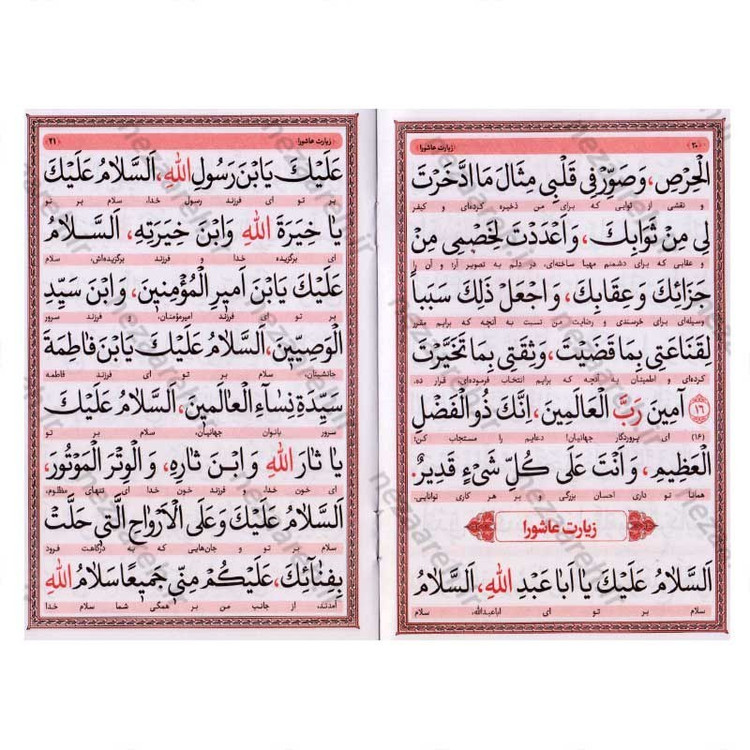 ۲۰
زیارت عاشورا
الْحِرْصِ، وَصَوِّرْ فِی قَلْبِی مِثَالَ مَا ادَّخَرْتَ
و نقشی از ثوابی که برای من ذخیره کرده‌ای و کیفر
لِی مِنْ ثَوَابِكَ، وَ اَعْدَدْتَ لِخَصْمِی مِنْ
و عقابی که برای دشمنم مهیا ساخته‌ای، در دلم به تصویر آر؛ و آن را
جَزَائِكَ وَ عِقَابِكَ، وَ اجْعَلْ ذَلِكَ سَبَباً
وسیله‌ای برای خرسندی و رضایت من نسبت به آنچه که برایم مقرر
لِقَنَاعَتِی بِمَا قَضَیْتَ، وَ ثِقَتِی بِمَا تَخَیَّرْتَ
کرده‌ای و اطمینان به آنچه که برایم انتخاب فرموده‌ای، قرار ده.
۱۶ آمِینَ رَبَّ الْعَالَمِینَ، اِنَّكَ ذُو الْفَضْلِ
(۱۶) ای پروردگار جهانیان! دعایم را مستجاب کن؛
الْعَظِیمِ، وَ اَنْتَ عَلَی كُلِّ شَیْءٍ قَدِیرٌ.
همانا تو داری احسان بزرگی و بر هر کاری توانایی.
زیارت عاشورا
اَلسَّلَامُ عَلَیْكَ یَا اَبَا عَبْدِ اللهِ، اَلسَّلَامُ
سلام بر تو ای اباعبدالله، سلام
زیارت عاشورا
۲۱
عَلَیْكَ یَا بْنَ رَسُولِ اللهِ، اَلسَّلَامُ عَلَیْكَ
بر تو ای فرزند رسول خدا، سلام بر تو
یَا خِیَرَةَ اللهِ وَابْنَ خِیَرَتِهِ، اَلسَّلَامُ
ای برگزیده خدا و فرزند برگزیده‌اش، سلام
عَلَیْكَ یَا بْنَ اَمیرِ الْمُؤْمِنینَ، وَ ابْنَ سَیِّدِ
بر تو ای فرزند امیرمؤمنان، و فرزند سرور
الْوَصِیّینَ، اَلسَّلَامُ عَلَیْكَ یَا بْنَ فَاطِمَةَ
جانشینان، سلام بر تو ای فرزند فاطمه
سَیِّدَةِ نِسَاءِ الْعَالَمینَ، اَلسَّلَامُ عَلَیْكَ
سرور بانوان جهانیان، سلام بر تو
یَا ثَارَ اللهِ وَ ابْنَ ثَارِهِ، وَ الْوِتْرَ الْمَوْتُورَ،
ای خون خدا، و فرزند خون خدا ای تنهای مظلوم،
اَلسَّلَامُ عَلَیْكَ وَ عَلَی الْاَرْوَاحِ الَّتی حَلَّتْ
سلام بر تو و جان‌هایی که به درگاهت فرود
بِفِنَائِكَ، عَلَیْكُمْ مِنّی جَمیعًا سَلَامُ اللهِ
آمدند، از جانب من بر همگی شما سلام خدا
nezaareh.ir